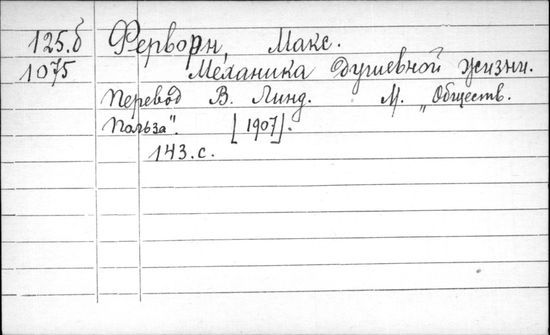 125.б Ферворн, Макс.
1075 Механика Душевной Жизни.
Перевод В. Линд. М. „Обществ.
Польза". [1907].
143.с.